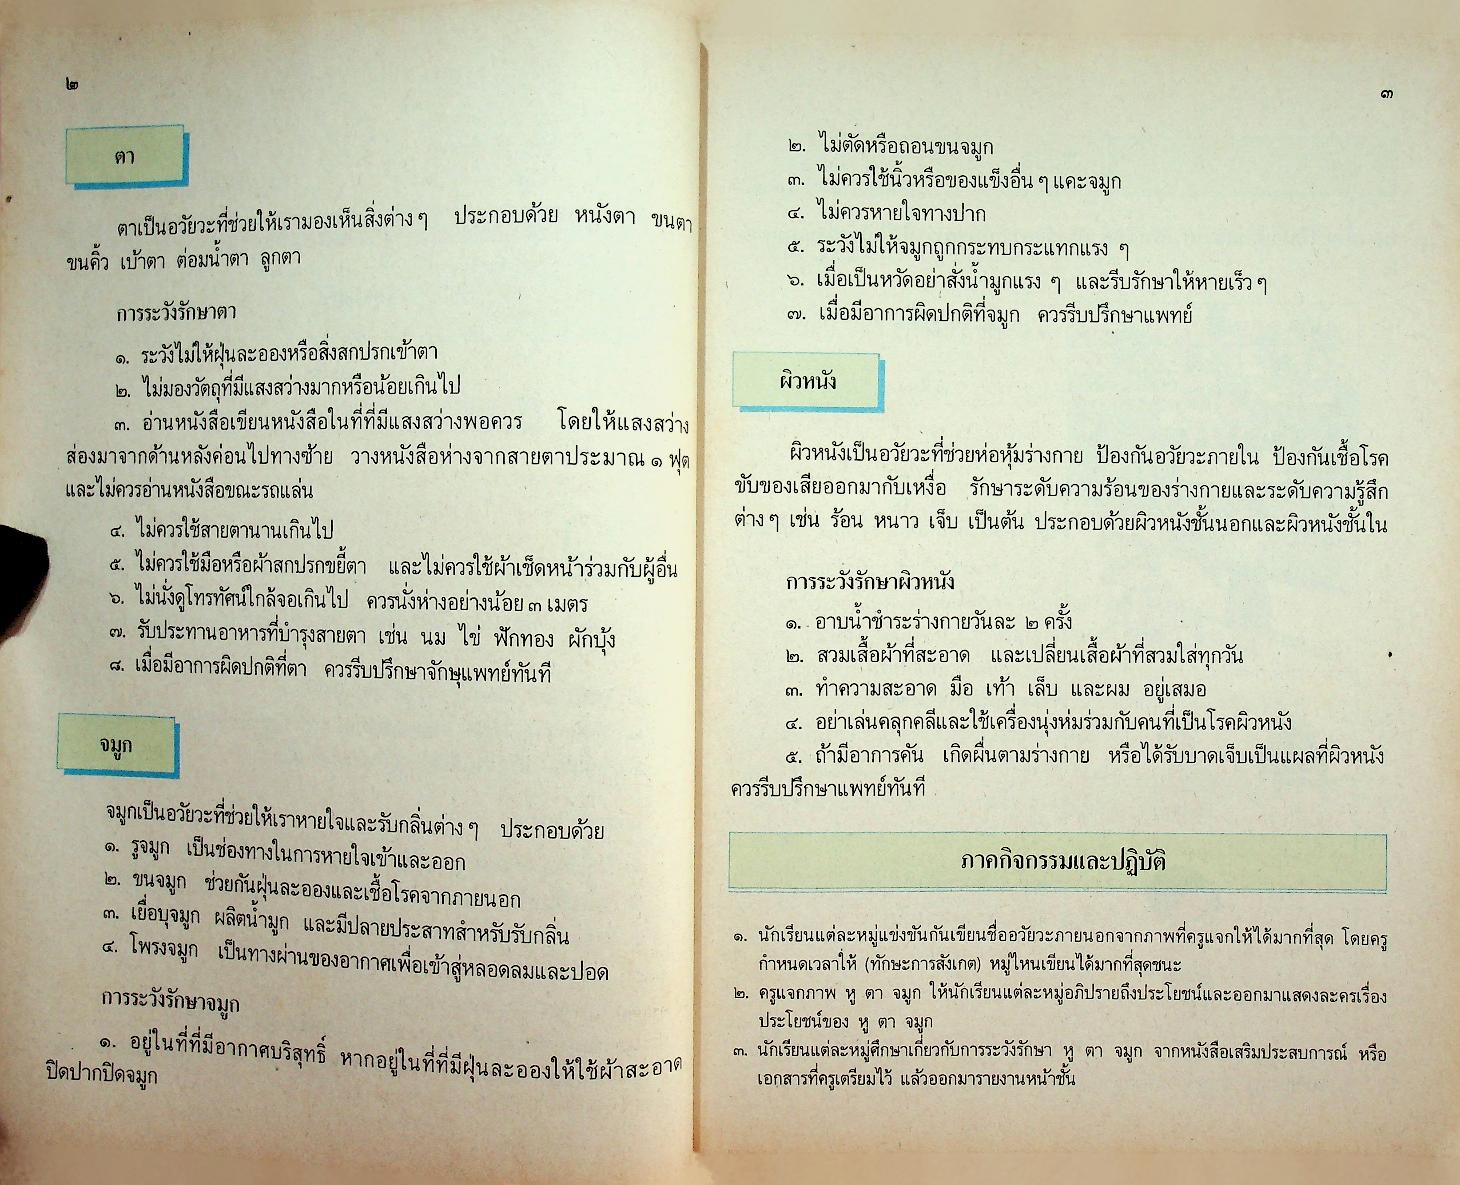 ๒
ตา
ตาเป็นอวัยวะที่ช่วยให้เรามองเห็นสิ่งต่าง ๆ ประกอบด้วย หนังตา ขนตา
ขนคิ้ว เบ้าตา ต่อมน้ำตา ลูกตา
การระวังรักษาตา
๑. ระวังไม่ให้ฝุ่นละอองหรือสิ่งสกปรกเข้าตา
๒. ไม่มองวัตถุที่มีแสงสว่างมากหรือน้อยเกินไป
๓. อ่านหนังสือเขียนหนังสือในที่ที่มีแสงสว่างพอควร โดยให้แสงสว่าง
ส่องมาจากด้านหลังค่อนไปทางซ้าย วางหนังสือห่างจากสายตาประมาณ ๑ ฟุต
และไม่ควรอ่านหนังสือขณะรถแล่น
๔. ไม่ควรใช้สายตานานเกินไป
๕. ไม่ควรใช้มือหรือผ้าสกปรกขยี้ตา และไม่ควรใช้ผ้าเช็ดหน้าร่วมกับผู้อื่น
๖. ไม่นั่งดูโทรทัศน์ใกล้จอเกินไป ควรนั่งห่างอย่างน้อย ๓ เมตร
๗. รับประทานอาหารที่บำรุงสายตา เช่น นม ไข่ ฟักทอง ผักบุ้ง
๘. เมื่อมีอาการผิดปกติที่ตา ควรรีบปรึกษาจักษุแพทย์ทันที
จมูก
จมูกเป็นอวัยวะที่ช่วยให้เราหายใจและรับกลิ่นต่าง ๆ ประกอบด้วย
๑. รูจมูก เป็นช่องทางในการหายใจเข้าและออก
๒. ขนจมูก ช่วยกันฝุ่นละอองและเชื้อโรคจากภายนอก
๓. เยื่อบุจมูก ผลิตน้ำมูก และมีปลายประสาทสำหรับรับกลิ่น
๔. โพรงจมูก เป็นทางผ่านของอากาศเพื่อเข้าสู่หลอดลมและปอด
การระวังรักษาจมูก
๑. อยู่ในที่ที่มีอากาศบริสุทธิ์ หากอยู่ในที่ที่มีฝุ่นละอองให้ใช้ผ้าสะอาด
ปิดปากปิดจมูก
๓
๒. ไม่ตัดหรือถอนขนจมูก
๓. ไม่ควรใช้นิ้วหรือของแข็งอื่น ๆ แคะจมูก
๔. ไม่ควรหายใจทางปาก
๕. ระวังไม่ให้จมูกถูกกระทบกระแทกแรง ๆ
๖. เมื่อเป็นหวัดอย่าสั่งน้ำมูกแรง ๆ และรีบรักษาให้หายเร็ว ๆ
๗. เมื่อมีอาการผิดปกติที่จมูก ควรรีบปรึกษาแพทย์
ผิวหนัง
ผิวหนังเป็นอวัยวะที่ช่วยห่อหุ้มร่างกาย ป้องกันอวัยวะภายใน ป้องกันเชื้อโรค
ขับของเสียออกมากับเหงื่อ รักษาระดับความร้อนของร่างกายและระดับความรู้สึก
ต่าง ๆ เช่น ร้อน หนาว เจ็บ เป็นต้น ประกอบด้วยผิวหนังชั้นนอกและผิวหนังชั้นใน
การระวังรักษาผิวหนัง
๑. อาบน้ำชำระร่างกายวันละ ๒ ครั้ง
๒. สวมเสื้อผ้าที่สะอาด และเปลี่ยนเสื้อผ้าที่สวมใส่ทุกวัน
๓. ทำความสะอาด มือ เท้า เล็บ และผม อยู่เสมอ
๔. อย่าเล่นคลุกคลีและใช้เครื่องนุ่งห่มร่วมกับคนที่เป็นโรคผิวหนัง
๕. ถ้ามีอาการคัน เกิดผื่นตามร่างกาย หรือได้รับบาดเจ็บเป็นแผลที่ผิวหนัง
ควรรีบปรึกษาแพทย์ทันที
ภาคกิจกรรมและปฏิบัติ
๑. นักเรียนแต่ละหมู่แข่งขันกันเขียนชื่ออวัยวะภายนอกจากภาพที่ครูแจกให้ได้มากที่สุด โดยครู
กำหนดเวลาให้ (ทักษะการสังเกต) หมู่ไหนเขียนได้มากที่สุดชนะ
๒. ครูแจกภาพ หู ตา จมูก ให้นักเรียนแต่ละหมู่อภิปรายถึงประโยชน์และออกมาแสดงละครเรื่อง
ประโยชน์ของ หู ตา จมูก
๓. นักเรียนแต่ละหมู่ศึกษาเกี่ยวกับการระวังรักษา หู ตา จมูก จากหนังสือเสริมประสบการณ์ หรือ
เอกสารที่ครูเตรียมไว้ แล้วออกมารายงานหน้าชั้น